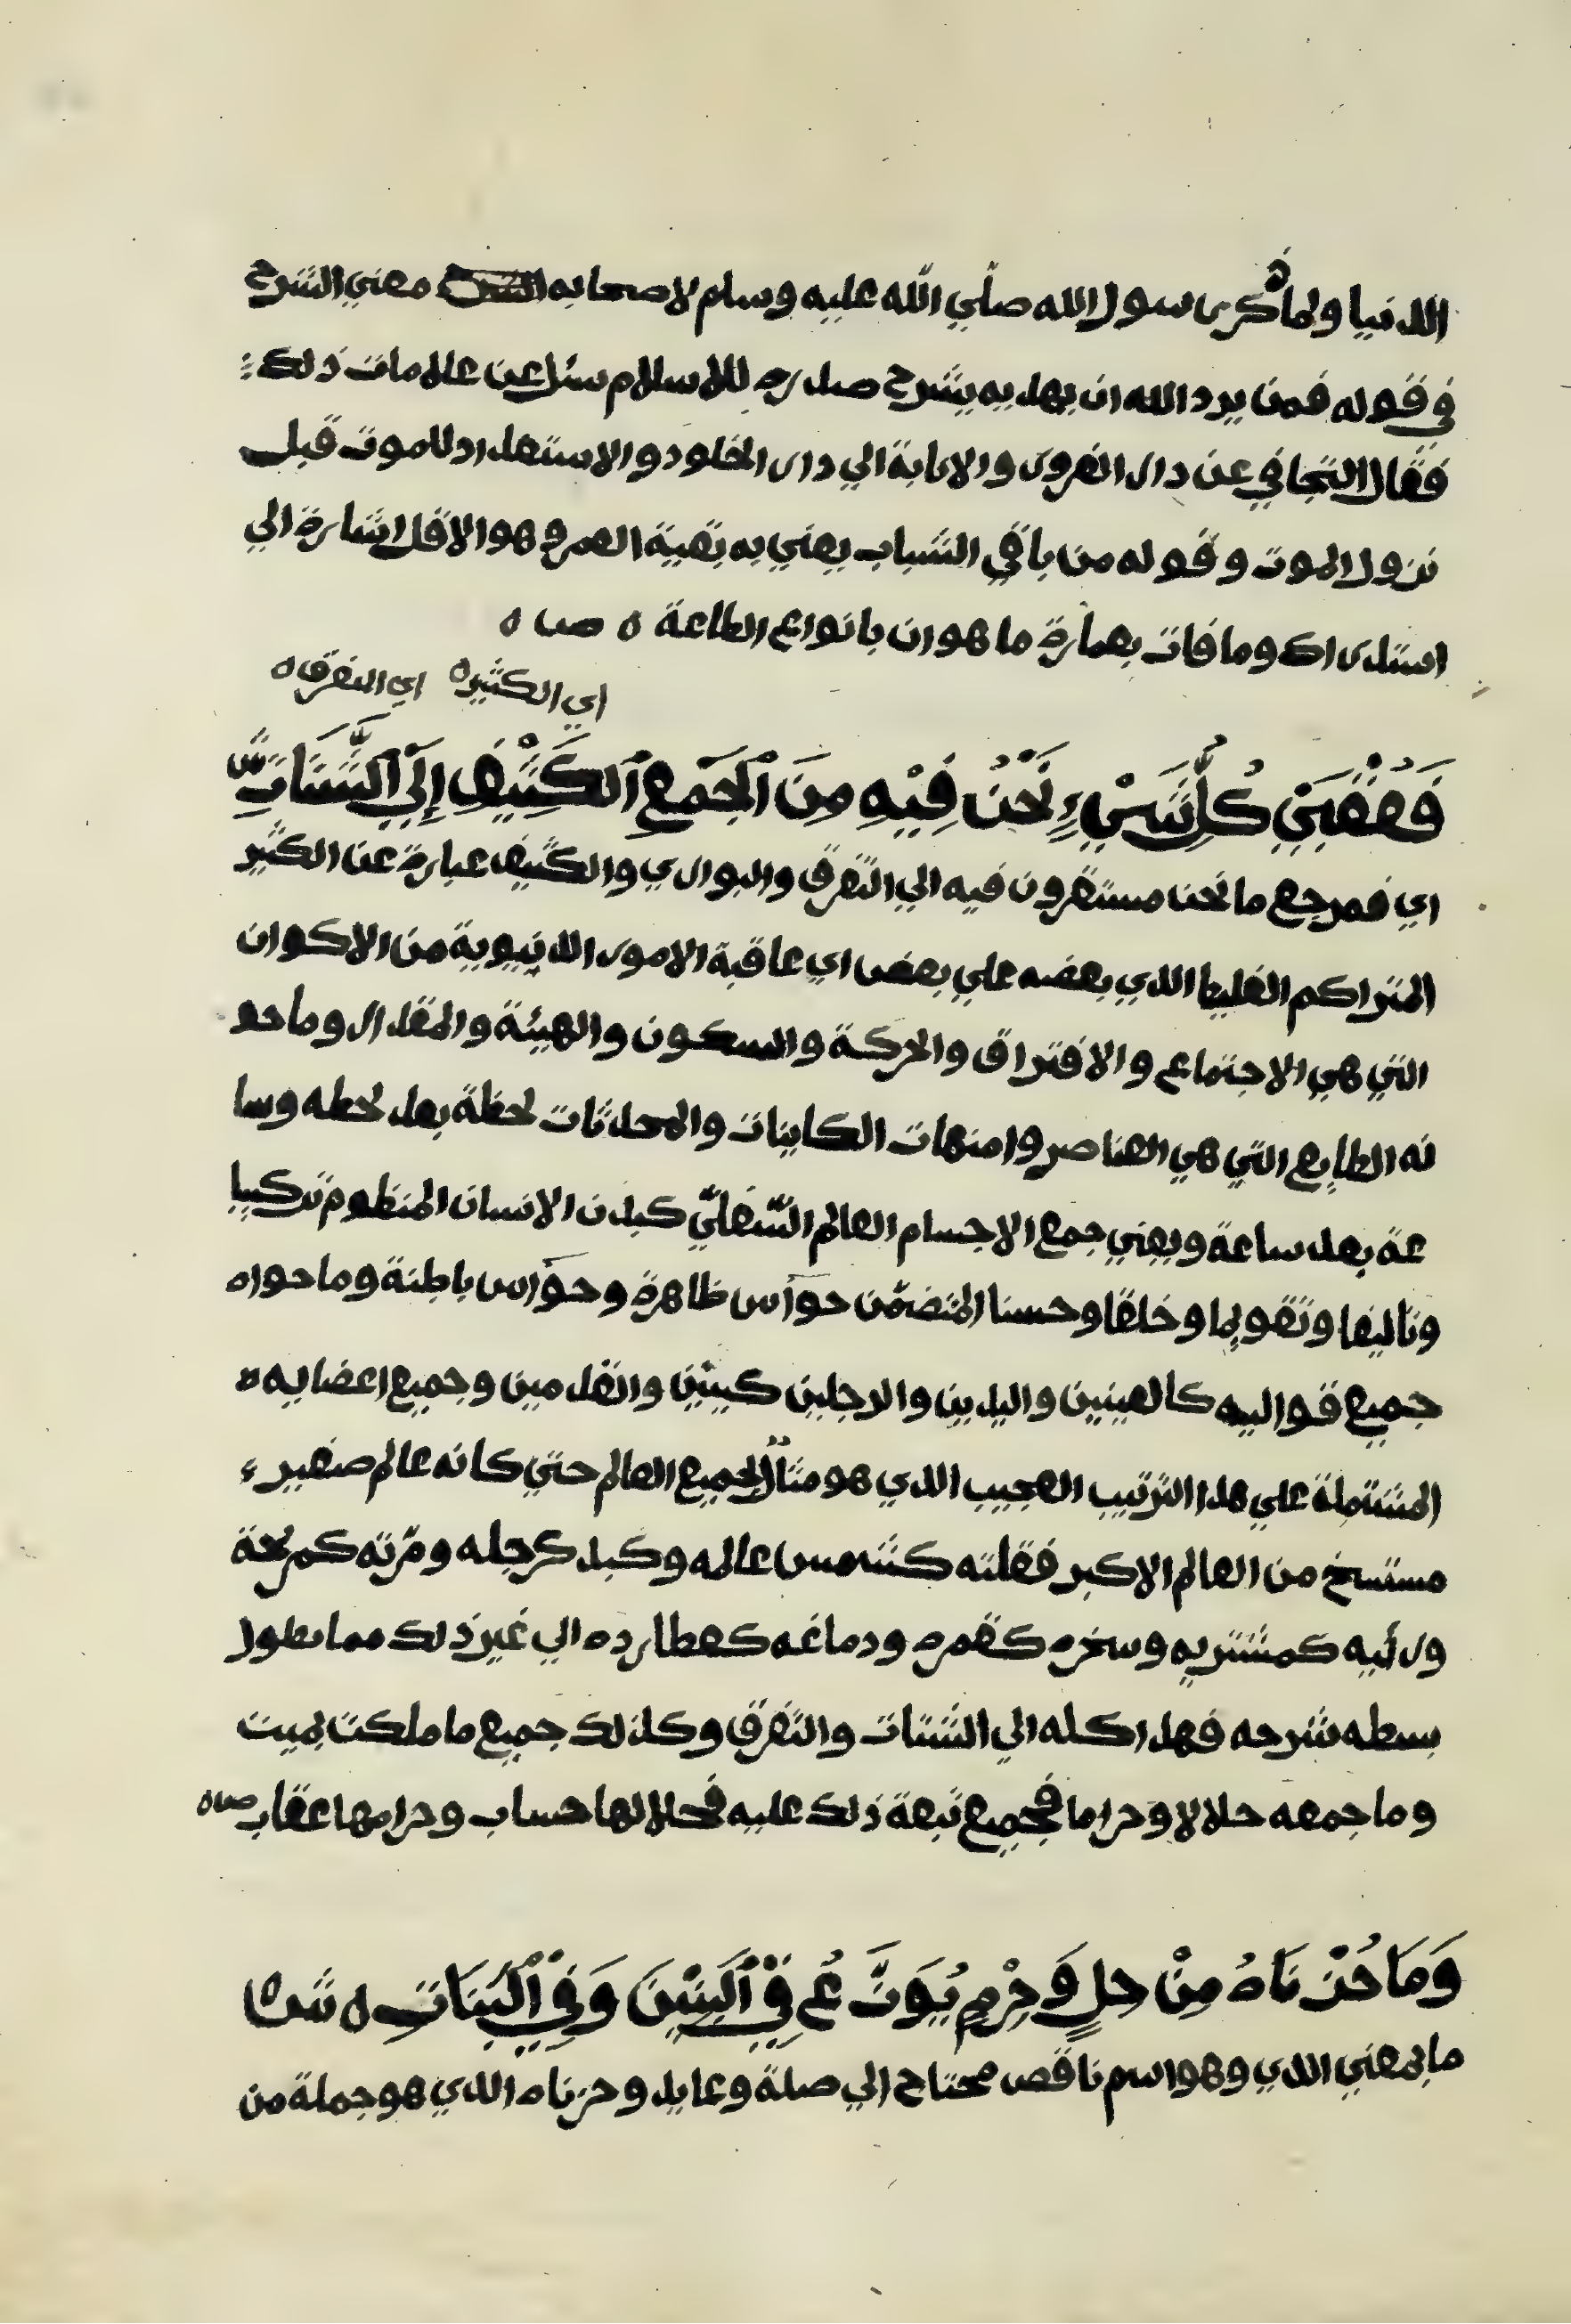 الدنيا ولما ذكر رسول الله صلّي اللّه عليه وسلم لاصحابه معني الشرح
في قوله فمن يرد الله ان يهديه يشرح صدره للاسلام سئل عن علامات ذلك
فقال التجافي عن دار الغرور والانابة الي دار الخلود والاستعداد للموت قبل
نزول الموت وقوله من باقي الشباب يعني به بقية العمر وهو الاقل اشارة الي
استدراك وما فات بعمارة ما هو ان بانواع الطاعة ه ص ه
اي الكثيره اي التفرق ه
فَعُقْبَيٰ كُلِّ شَيْءٍ نَحْنُ فِيْهِ مِنَ ٱلْجَمْعِ ٱلْكَثِيْفِ إِلَيٰ ٱلشَّتَاتِ ش
اي فمرجع ما نحن مستقرون فيه الي التفرق والبوار ي والكثيف عبارة عن الكثير
المتراكم الغليظ الذي بعضه علي بعض اي عاقبة الامور الدنيوية من الاكوان
التي هي الاجتماع والافتراق والحركة والسكون والهيئة والمقدار وما حو
ته الطبايع التي هي العناصر وامنهات الكاينات والمحدثات لحظة بعد لحظه وسا
عة بعد ساعة ويعني جمع الاجسام العالم السّفليّ كبدن الانسان المنظوم تركيبا
وتاليفا وتقويما وخلقا وحسنا المتضمّن حوآس ظاهرة وحوآس باطنة وما حواه
جميع قواليه كالعينين واليدين والرجلين كبيتين والقدمين وجميع اعضايه ه
المشتملة علي هذا الترتيب العجيب الذي هو مثالٌ لجميع العالم حتي كانه عالم صغير
مستنسخ من العالم الاكبر فقلته كشمس عالمه وكبد كرجله ومرّته كمريخة
ورئيه كمشتريه وسخره كقمره ودماغه كعطارده الي غير ذلك مما يطول
بسطه شرحه فهذا كله الي الشتات والتفرق وكذلك جميع ما ملكت يميت
وما جمعه حلالا وحراما فجميع تبعة ذلك عليه فحلالها حساب وحرامها عقاب ص ه
وَمَا حُزْنَاهُ مِنْ حِلٍ وَحِرْمٍ يُوَزَّعُ فِيْ ٱلْبَنِيْنَ وَفِيْ ٱلْبَنَاتِ ه ش ه
ما بمعني الذي وهو اسم ناقص محتاج الي صلة وعايد وحزناه الذي هو جملة من